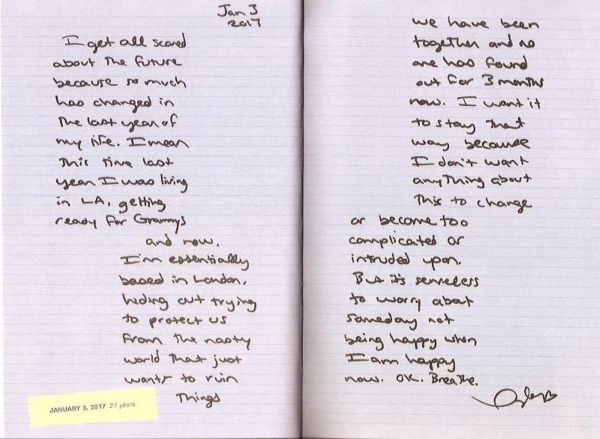 Jan 3
2017
I get all scared
about the future
because so much
has changed in
the last year of
my life. I mean
This time last
year I was living
in LA, getting
ready for Grammys
and now,
I'm essentially
based in London,
hiding out trying
to protect us
from the nasty
world that just
wants to ruin
Things
JANUARY 3, 2017 27 years
we have been
together and no
one has found
out for 3 months
now. I want it
to stay that
way because
I don't want
anything about
This to change
or become too
complicated or
intruded upon.
But it's senseless
to worry about
someday not
being happy when
I am happy
now. OK. Breathe.